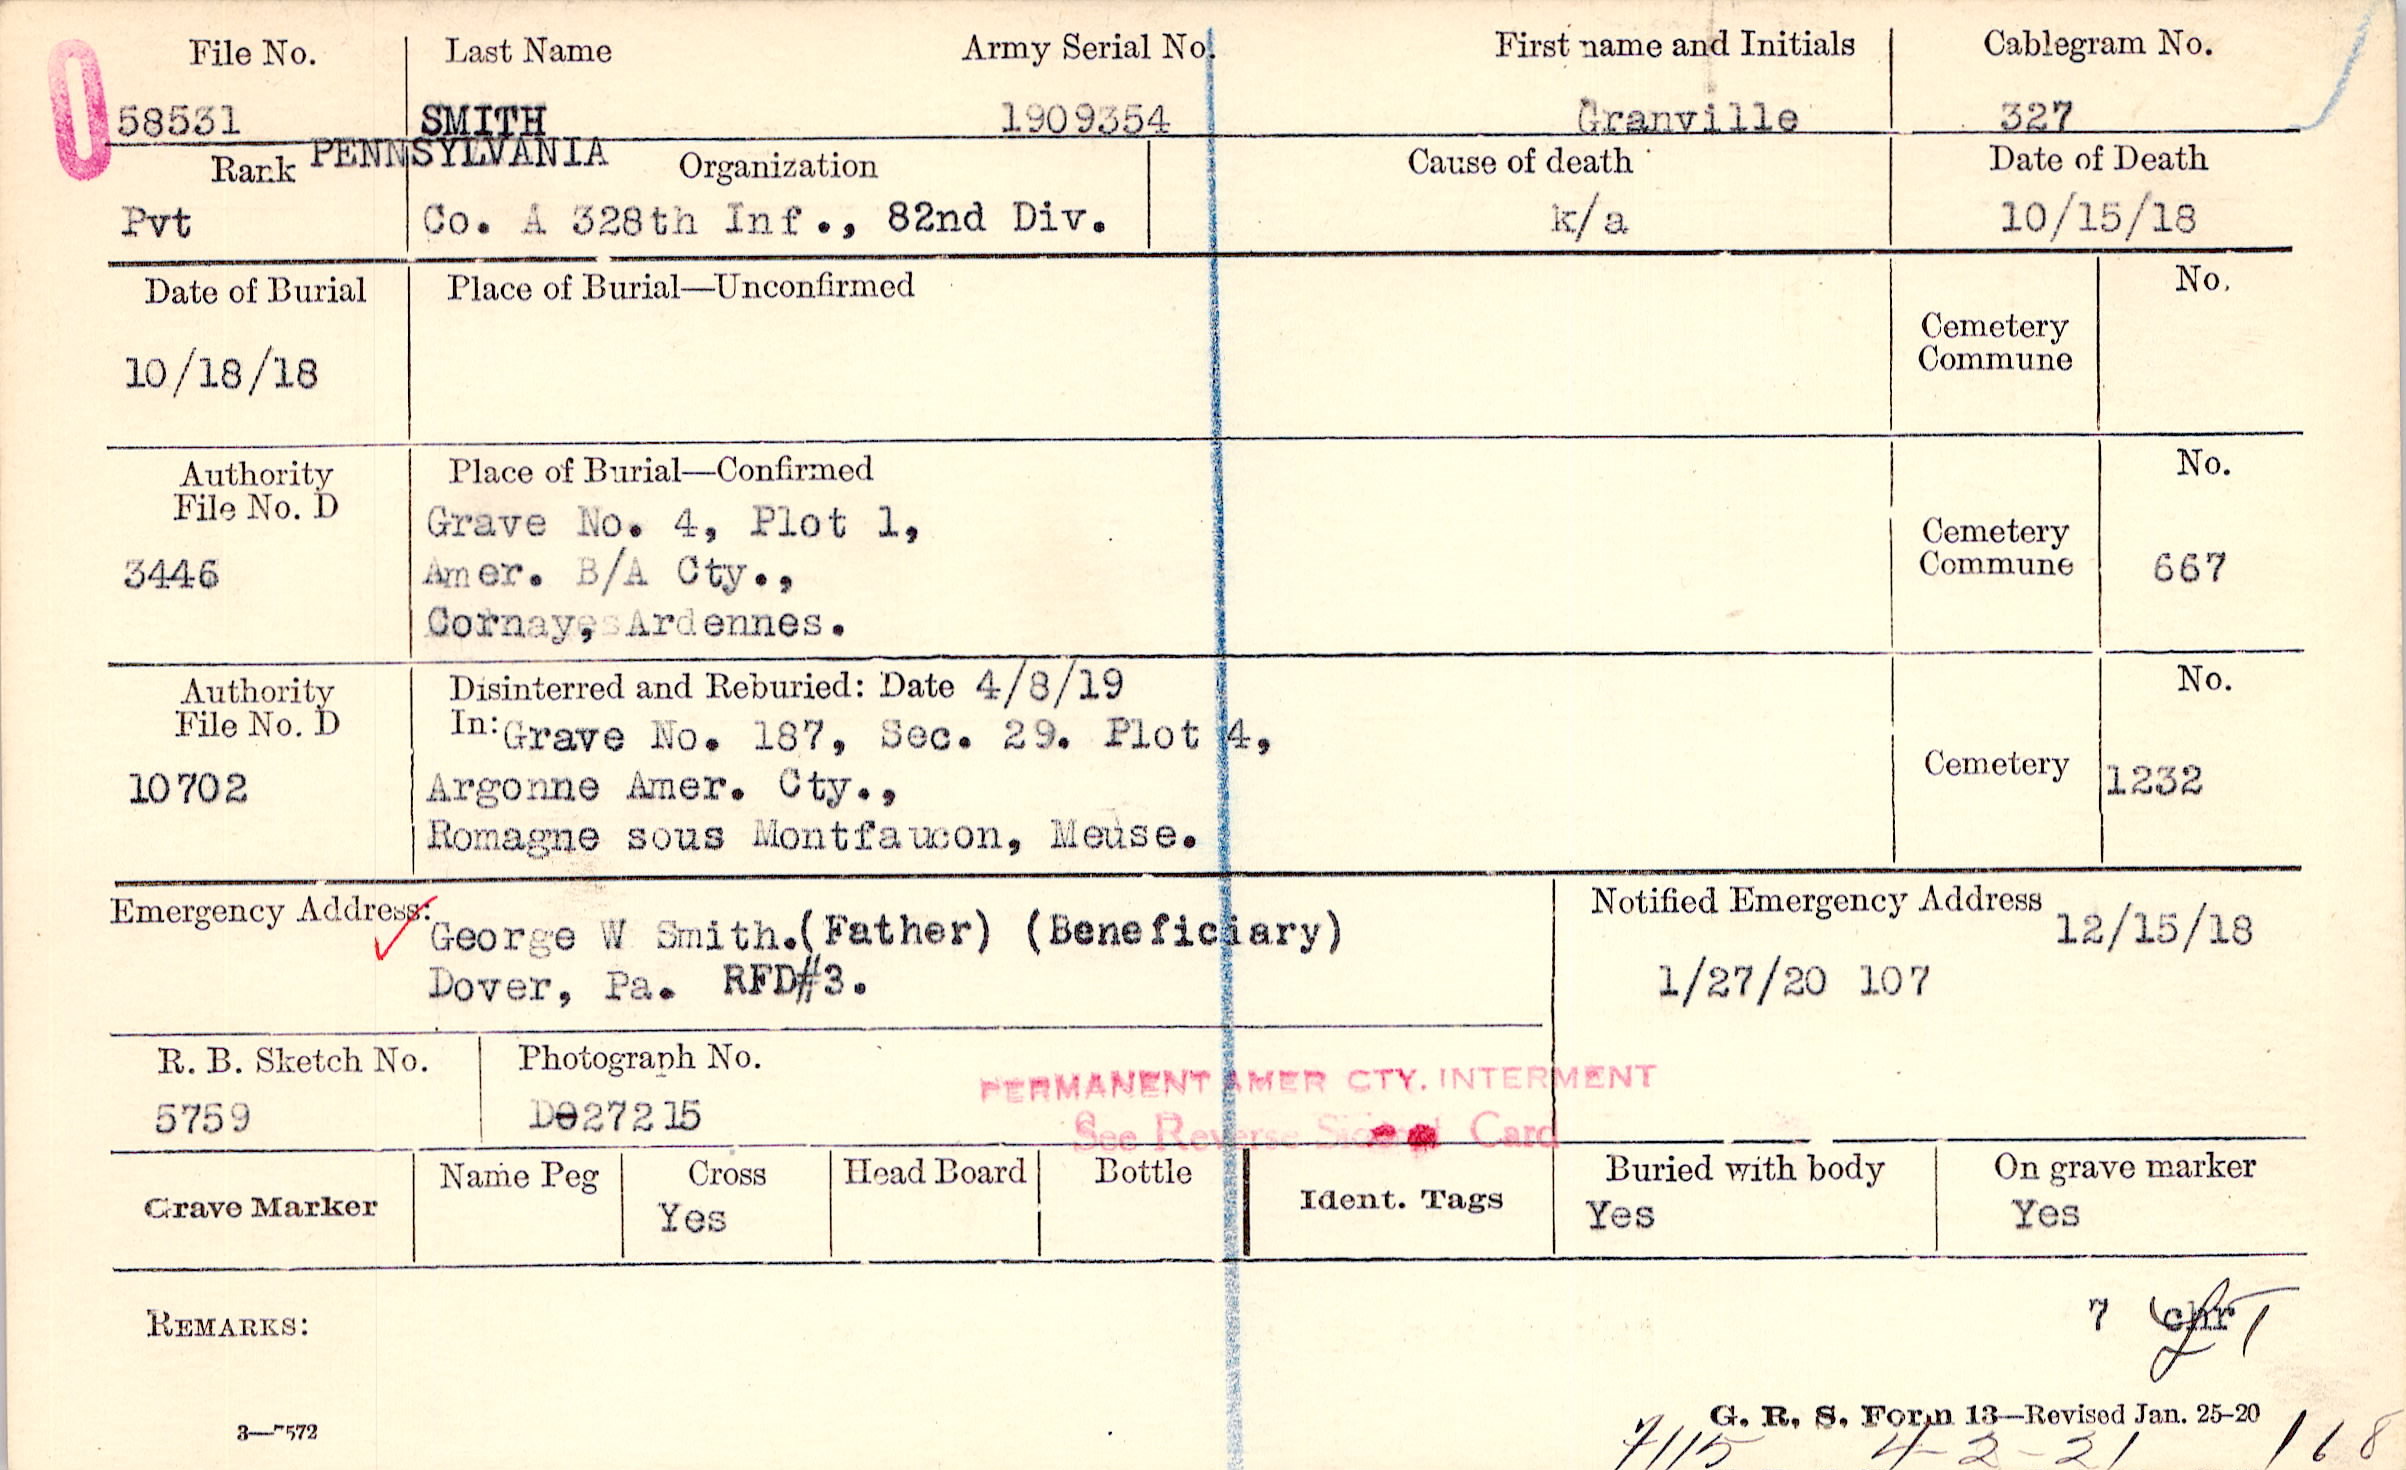 File No. Last Name Army Serial No. First name and Initials Cablegram No.
58531 SMITH 1909354 Granville 327
PENNSYLVANIA
Rank Organization Cause of death Date of Death
Pvt Co. A 328th Inf., 82nd Div. k/a 10/15/18
Date of Burial Place of Burial—Unconfirmed No.
Cemetery
Commune
10/18/18
Authority Place of Burial—Confirmed No.
File No. D
Grave No. 4, Plot 1,
Cemetery
3446 Amer. B/A Cty., Commune 667
Cornay, Ardennes.
Authority Disinterred and Reburied: Date 4/8/19 No.
File No. D In: Grave No. 187, Sec. 29. Plot 4,
10702 Argonne Amer. Cty., Cemetery 1232
Romagne sous Montfaucon, Meuse.
Emergency Address: George W Smith.(Father) (Beneficiary) Notified Emergency Address 12/15/18
Dover, Pa. RFD#3. 1/27/20 107
R. B. Sketch No. Photograph No.
PERMANENT AMER CTY. INTERMENT
5759 D027215
See Reverse Card
Grave Marker Name Peg Cross Head Board Bottle Ident. Tags Buried with body On grave marker
Yes Yes Yes
7 chr
REMARKS:
G. R. S. Form 13—Revised Jan. 25-20
3—7572
7/15 4-2-21 168